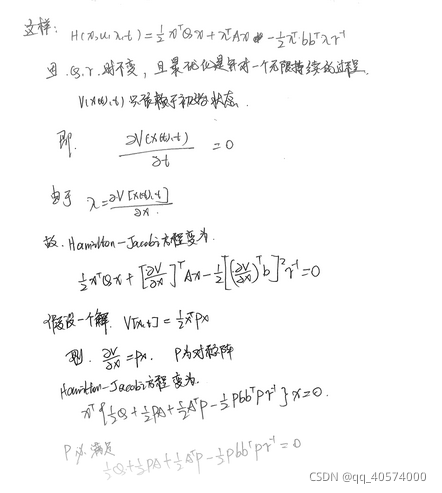 这样: H(x,u,λ,t) = ½xᵀQx + λᵀAx - ½λᵀbbᵀλr⁻¹
因 Q, r 时不变, 且最优化是针对一个无限持续的过程.
V(x(t),t) 只依赖于初始状态.
即. ∂V(x(t),t)/∂t = 0
由于 λ = ∂V[x(t),t]/∂x.
故. Hamilton-Jacobi方程变为.
½xᵀQx + [∂V/∂x]ᵀAx - ½[(∂V/∂x)ᵀb]²r⁻¹ = 0
假设一个解. V[x,t] = ½xᵀpx
则. ∂V/∂x = px. P为对称阵
Hamilton-Jacobi方程变为.
xᵀ{½Q + ½PA + ½AᵀP - ½Pbbᵀpr⁻¹}x = 0.
P必满足
½Q + ½PA + ½AᵀP - ½Pbbᵀpr⁻¹ = 0
CSDN @qq_40574000